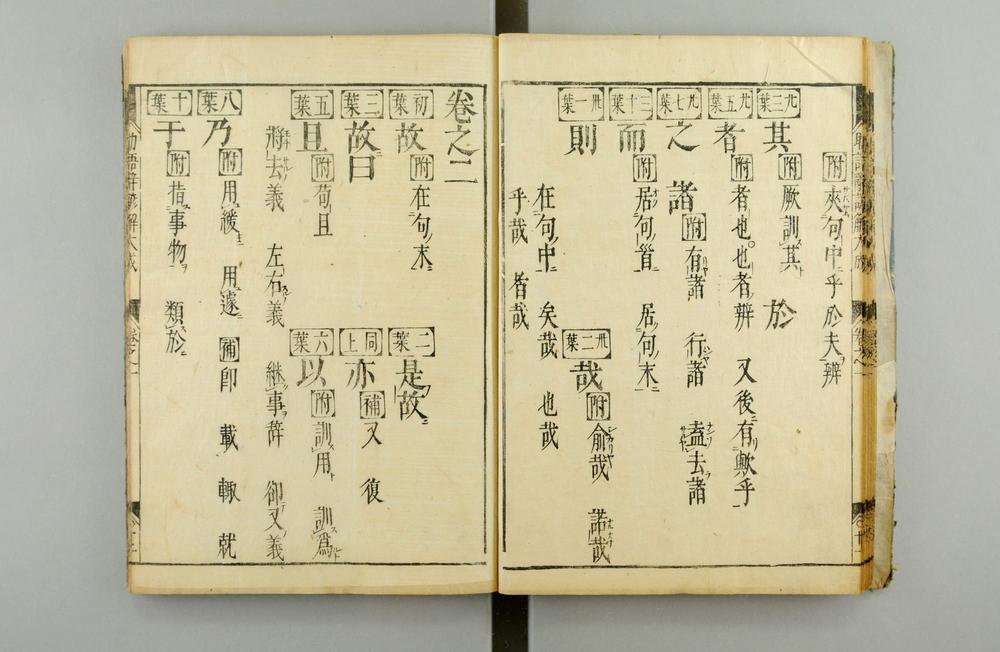 附 夾句中乎於夫辨
卅三葉 其 附 厥訓其 於
卅五葉 者 附 者也也者辨 又後有歟乎
卅七葉 之 諸 附 有諸 行諸 盍去諸
三十葉 而 附 居句首 居句末
卅一葉 則 卅二葉 哉 附 俞哉 諾哉
在句中 矣哉 也哉
乎哉 者哉
卷之二
初葉 故 附 在句末 二葉 是故
三葉 故曰 同上 亦 補 又 復
五葉 且 附 苟且 六葉 以 附 訓用 訓為
將去義 左右義 継事辞 卻又義
八葉 乃 附 用緩 用遽 補 即 載 輙 就
十葉 于 附 指事物 類於
助語辞諺解大成